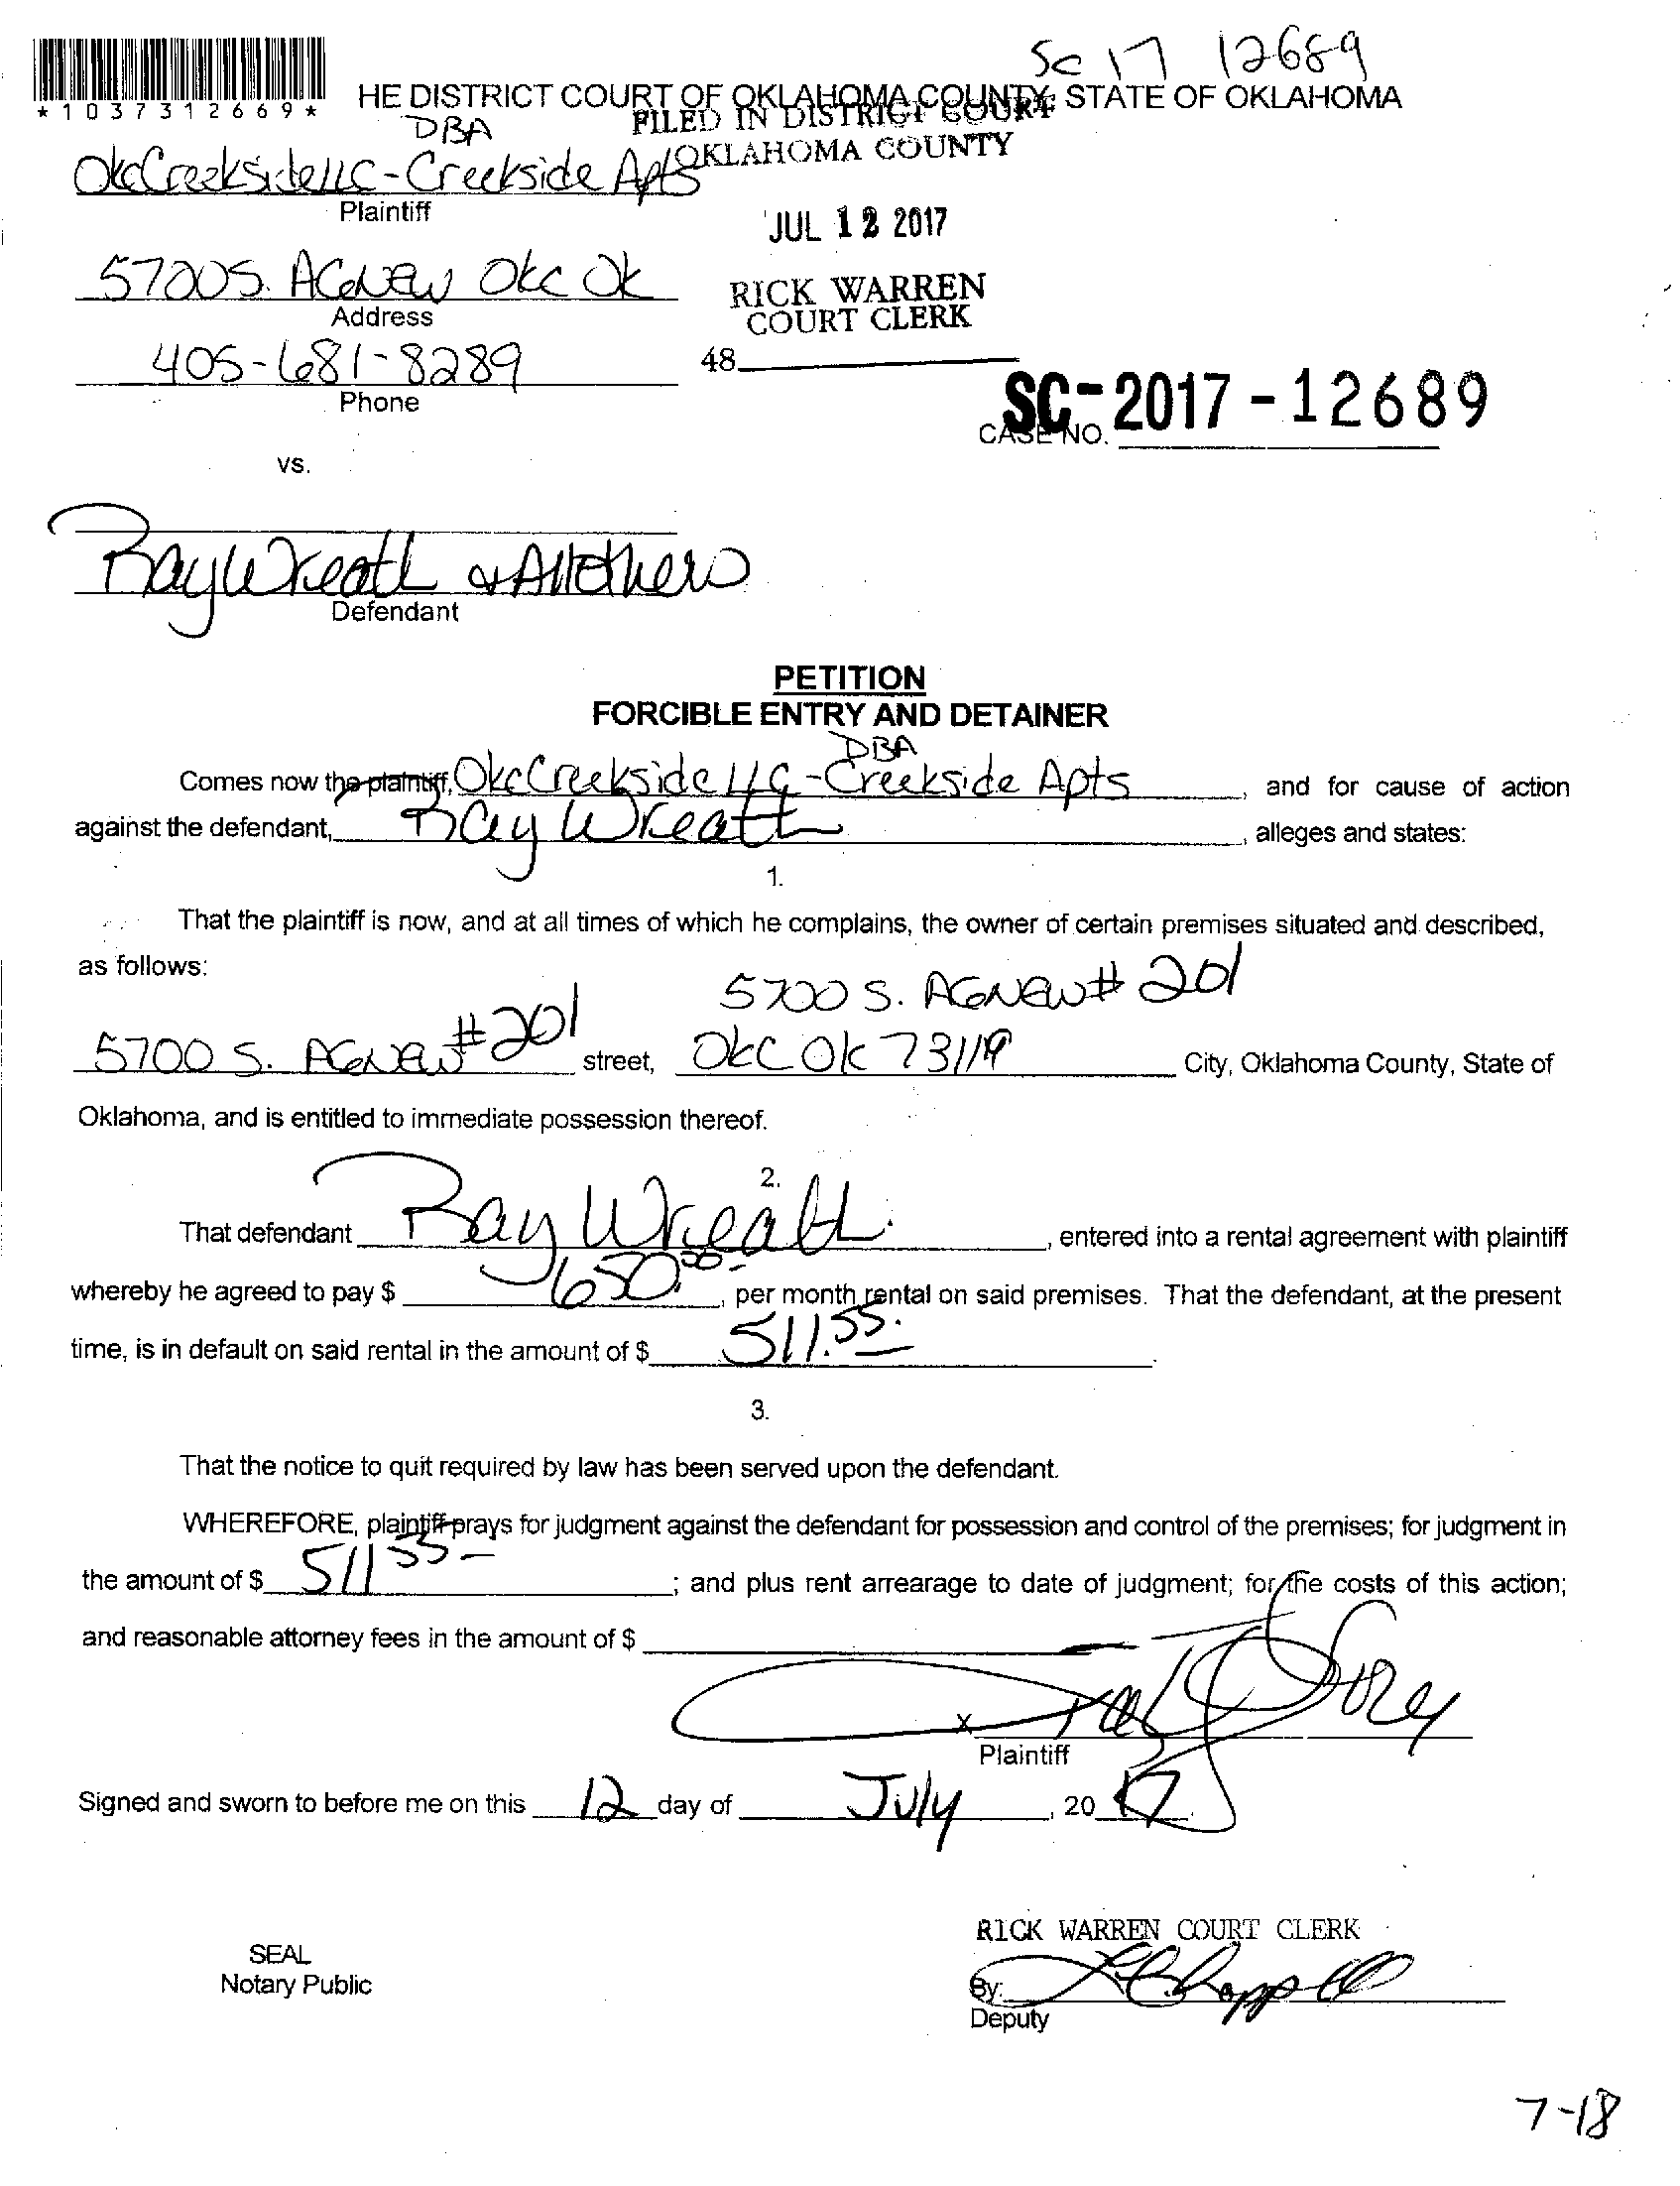 SC 17 12689
*1037312669*
HE DISTRICT COURT OF OKLAHOMA COUNTY, STATE OF OKLAHOMA
FILED IN DISTRICT COURT
OKLAHOMA COUNTY
DBA
OkcCreeksideLLC - Creekside Apts
Plaintiff
JUL 12 2017
5700 S. AGNEW OKC OK
Address
RICK WARREN
COURT CLERK
405-681-8289
Phone
48
SC-2017-12689
CASE NO.
vs.
Ray Wreath & All Others
Defendant
PETITION
FORCIBLE ENTRY AND DETAINER
DBA
Comes now the plaintiff, OkcCreekside LLC - Creekside Apts, and for cause of action
against the defendant, Ray Wreath, alleges and states:
1.
That the plaintiff is now, and at all times of which he complains, the owner of certain premises situated and described,
as follows:
5700 S. AGNEW # 201
5700 S. AGNEW #201 street, OKC OK 73119 City, Oklahoma County, State of
Oklahoma, and is entitled to immediate possession thereof.
2.
That defendant Ray Wreath, entered into a rental agreement with plaintiff
whereby he agreed to pay $ 650.00, per month rental on said premises. That the defendant, at the present
time, is in default on said rental in the amount of $ 511.55.
3.
That the notice to quit required by law has been served upon the defendant.
WHEREFORE, plaintiff prays for judgment against the defendant for possession and control of the premises; for judgment in
the amount of $ 511 55; and plus rent arrearage to date of judgment; for the costs of this action;
and reasonable attorney fees in the amount of $
X
Plaintiff
Signed and sworn to before me on this 12 day of July, 2017
RICK WARREN COURT CLERK
SEAL
Notary Public
By:
Deputy
7-18